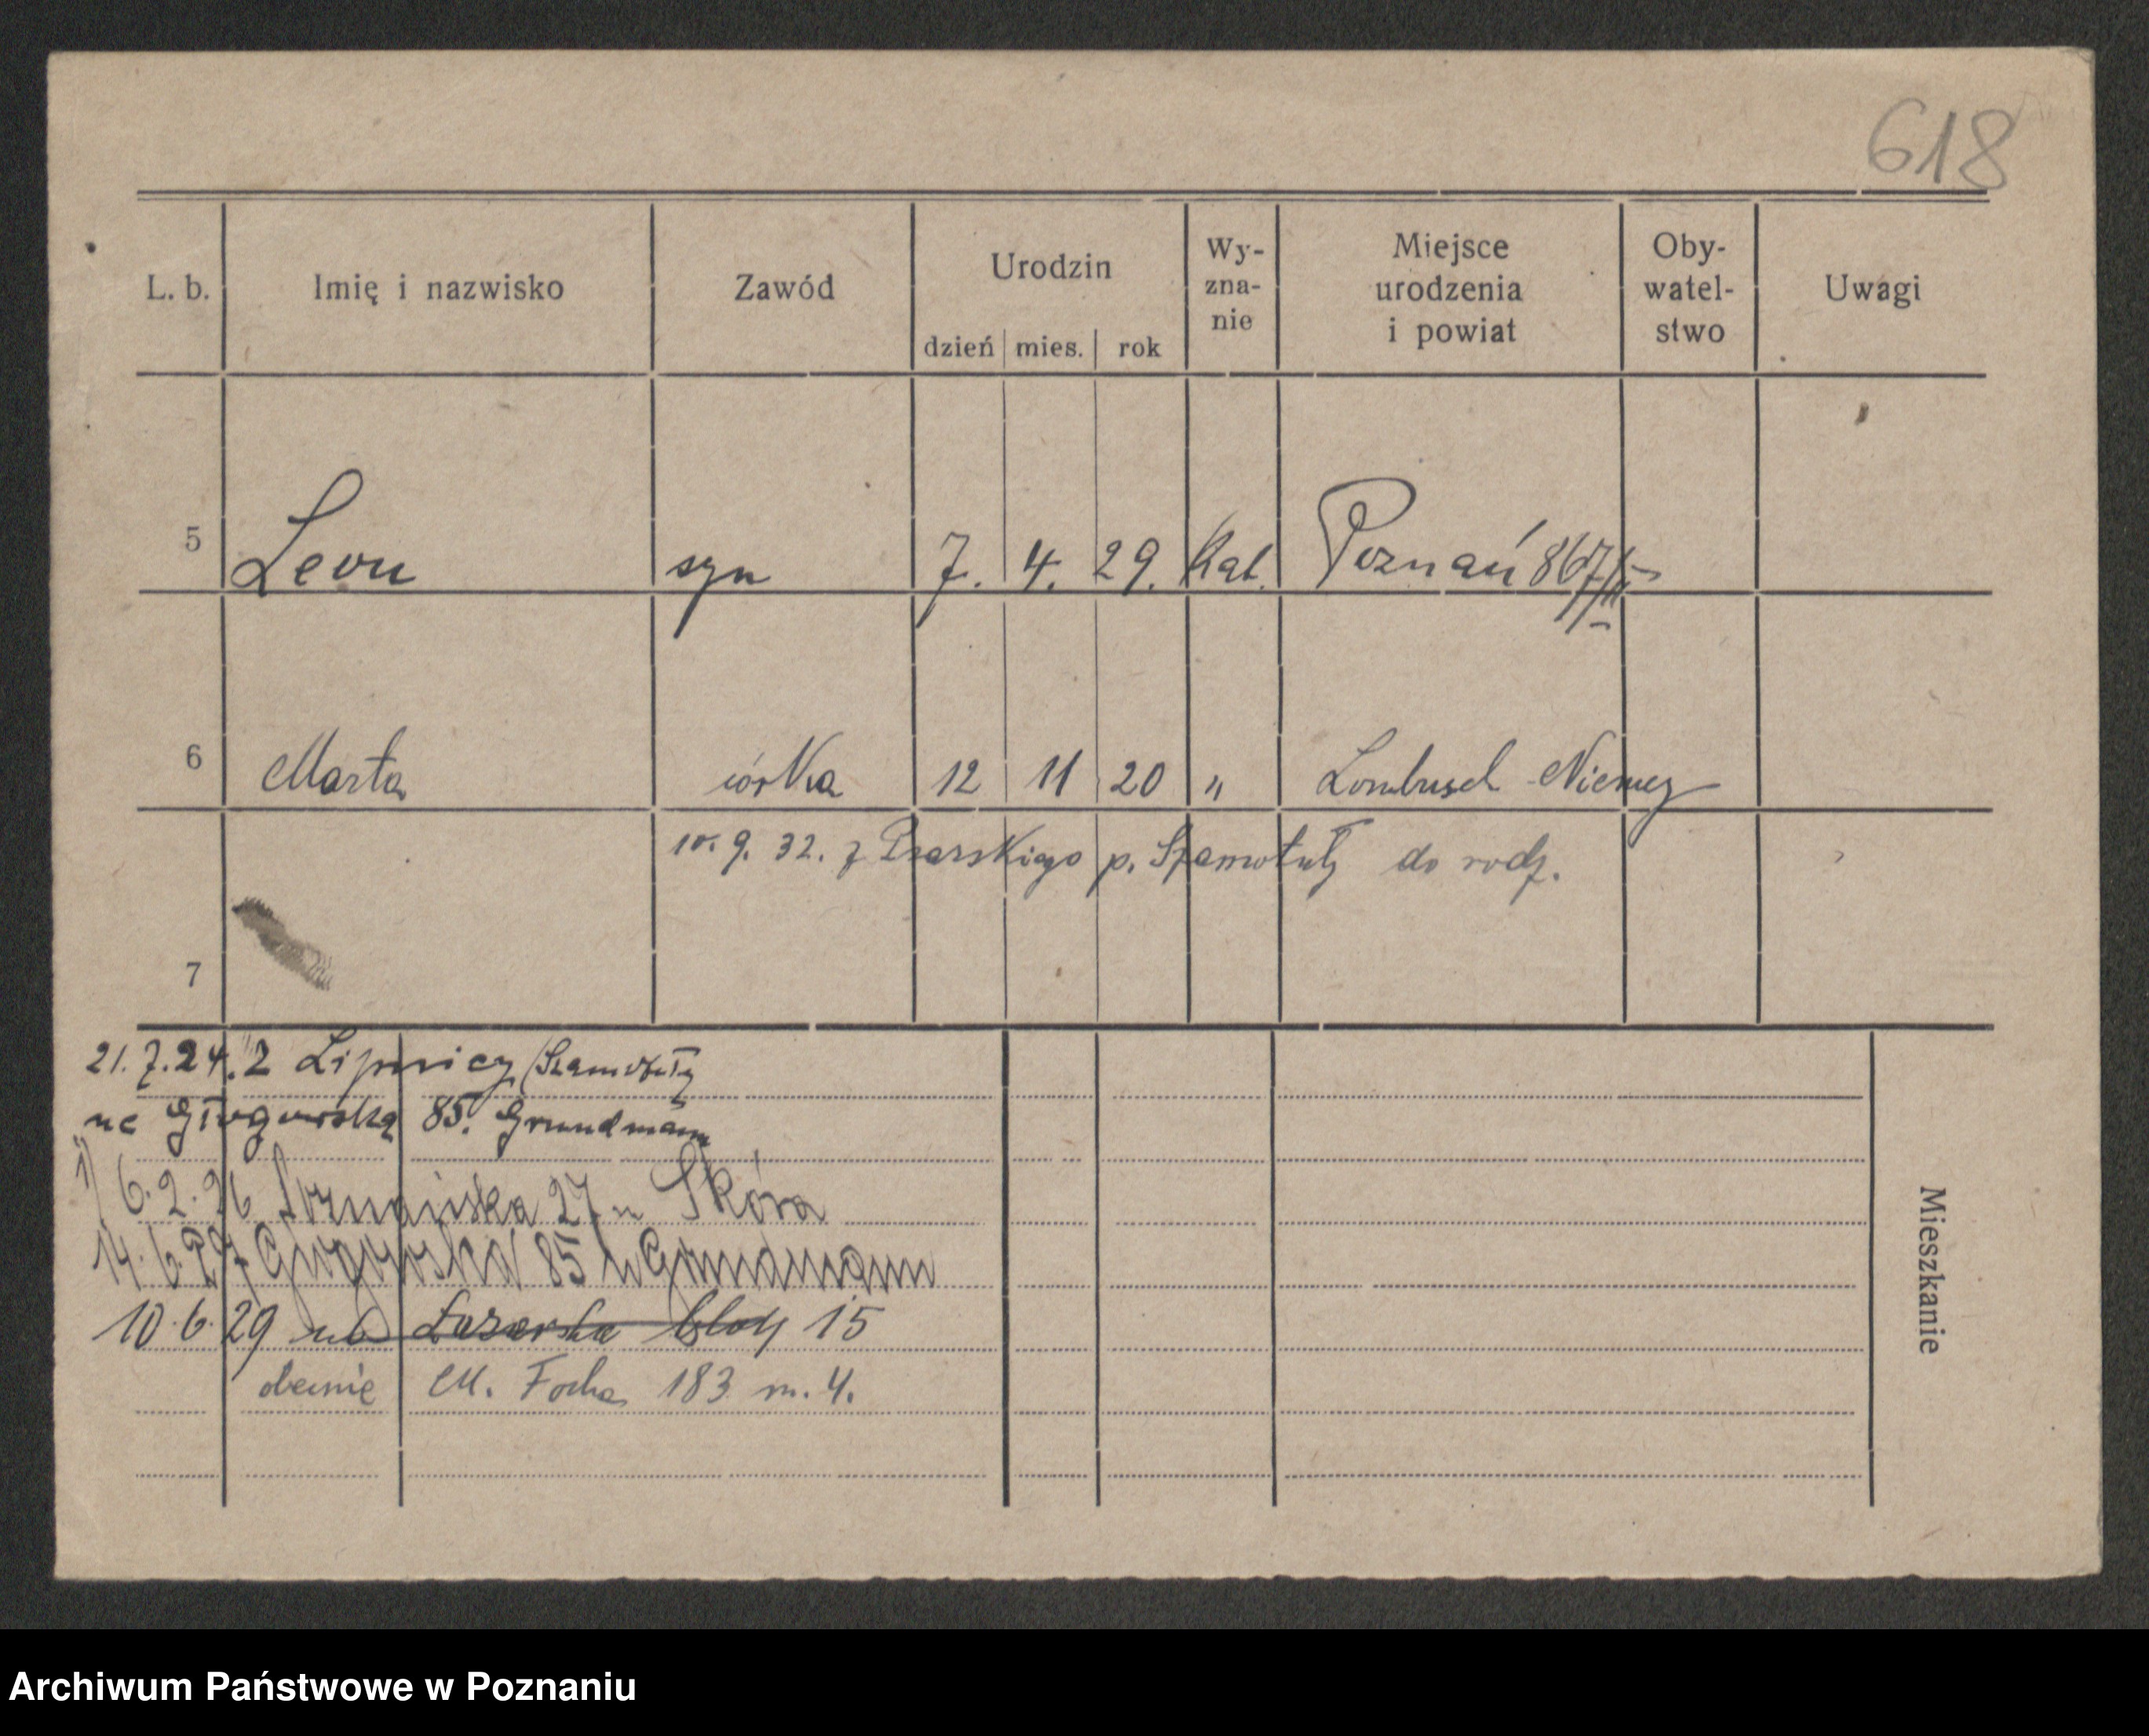 618
L. b. Imię i nazwisko Zawód Urodzin Wy-zna-nie Miejsce urodzenia i powiat Oby-watel-stwo Uwagi
dzień mies. rok
5 Leon syn 7. 4. 29. Kat. Poznań 867/II
6 Marta córka 12 11 20 " Niemcy
10. 9. 32. z Psarskiego p. Szamotuły do rodz.
7
21. 7. 24. z Lipnicy /Szamotuły
na Głogowska 85. Grundmann
6. 2. 26 Poznańska 27 u Skóra
14. 6. 27 Głogowska 85 u Grundmann
10. 6. 29 na Łazarska bloki 15
obecnie M. Focha 183 m. 4.
Mieszkanie
Archiwum Państwowe w Poznaniu